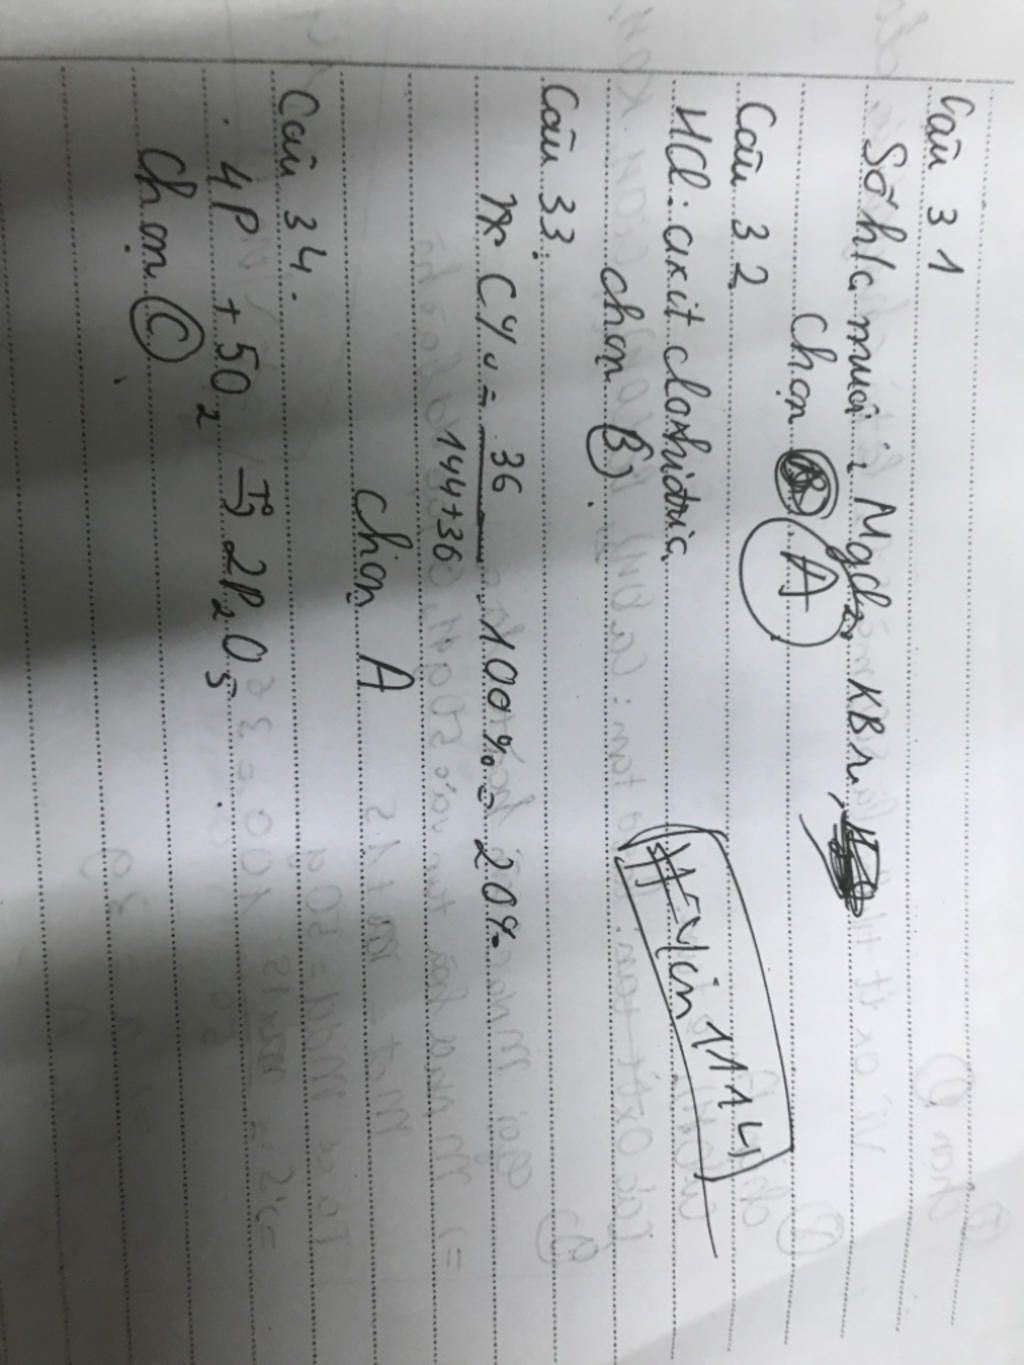 Câu 31
Số h/c muối: MgCl2, KBr,
Chọn A
Câu 32
HCl: axit clohiđric
Chọn B.
Câu 33:
C% = 36/144+36 . 100% = 20%
Chọn A
Câu 34.
4P + 5O2 →t° 2P2O5.
Chọn C